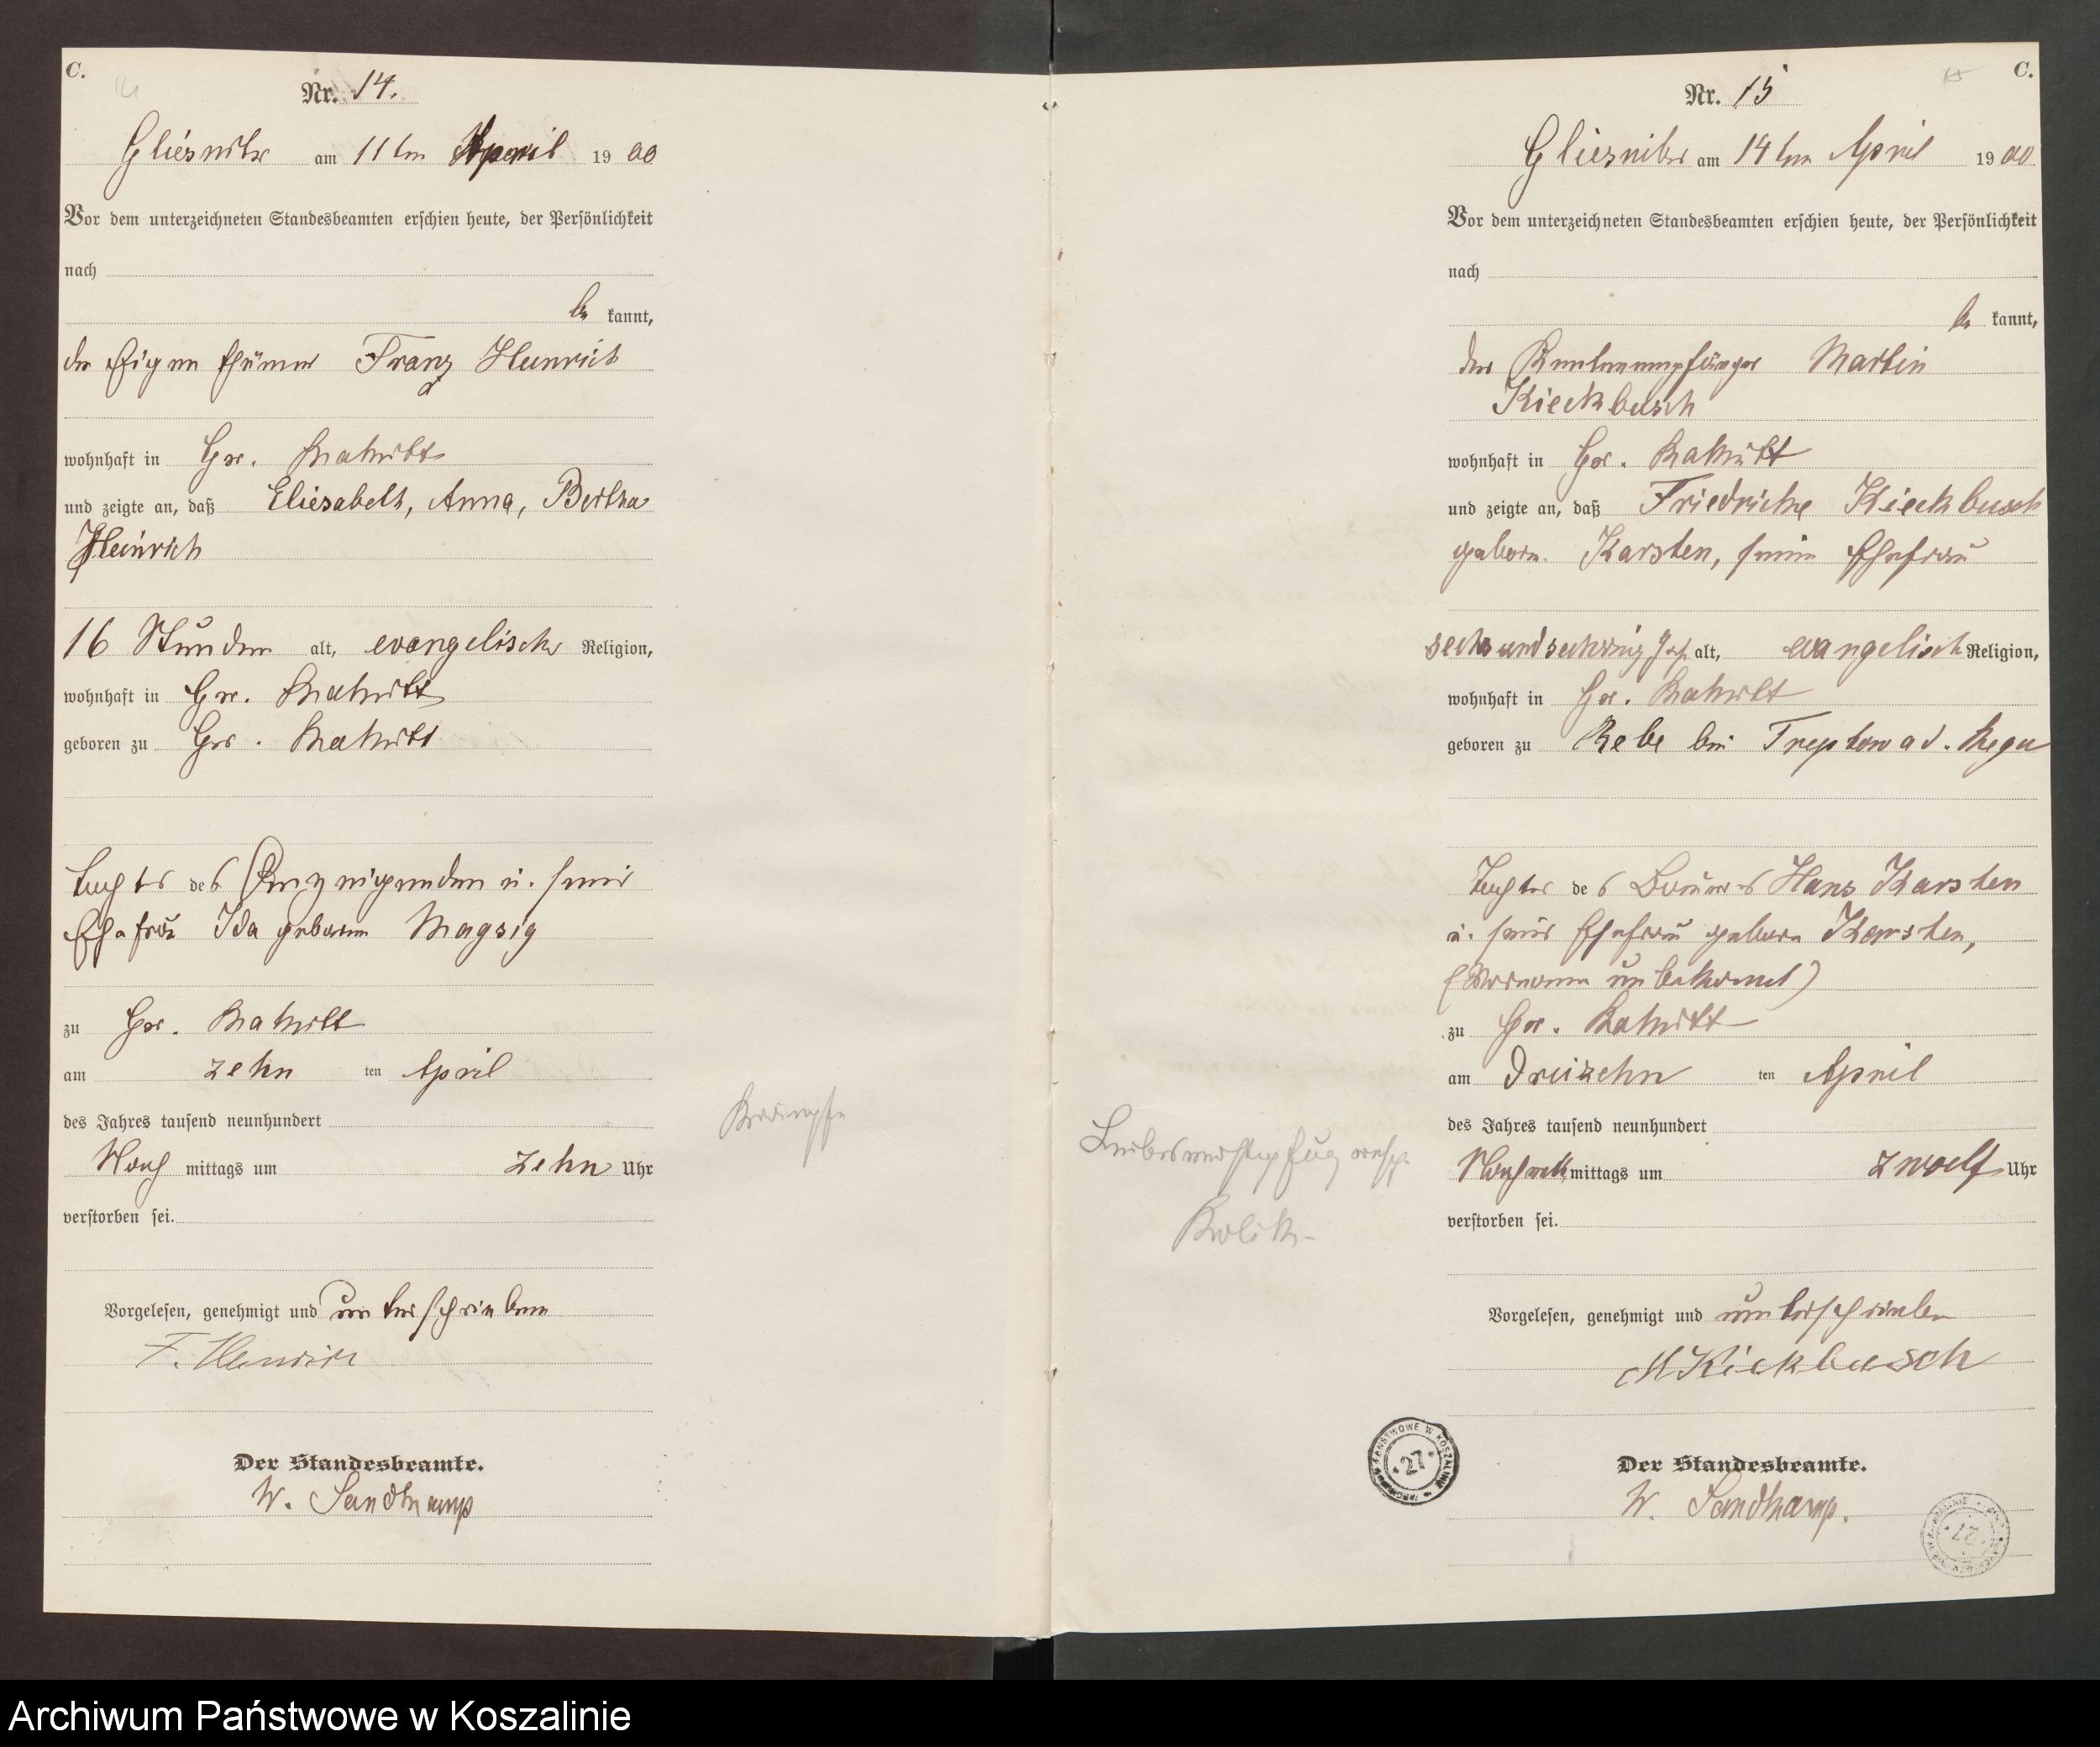 C.
Nr. 14.
am 11 ten April 19 00
Vor dem unterzeichneten Standesbeamten erschien heute, der Persönlichkeit
nach
be kannt,
der Eigenthümer Franz Heinrich
wohnhaft in Gr. Katwitt
und zeigte an, daß Eliesabeth, Anna, Bertha
Heinrich
16 Stunden alt, evangelischer Religion,
wohnhaft in Gr. Katwitt
geboren zu Gr. Katwitt
Tochter des Anzeigenden u. seiner
Ehefrau Ida geborene Magsig
zu Gr. Katwitt
am zehn ten April
des Jahres tausend neunhundert
Nach mittags um zehn Uhr
verstorben sei.
Krämpfe
Vorgelesen, genehmigt und unterschrieben
F. Heinrich
Der Standesbeamte.
W. Sandkamp
C.
Nr. 15
am 14 ten April 19 00
Vor dem unterzeichneten Standesbeamten erschien heute, der Persönlichkeit
nach
be kannt,
der Rentenempfänger Martin
Kieckbusch
wohnhaft in Gr. Katwitt
und zeigte an, daß Friedricke Kieckbusch
geborn. Karsten, seine Ehefrau
sechsundsechzig Jahr alt, evangelisch Religion,
wohnhaft in Gr. Katwitt
geboren zu Rebe bei Treptow a d. Rega
Tochter des Bauers Hans Karsten
u. seiner Ehefrau geborn Karsten,
(Vorname unbekannt)
zu Gr. Katwitt
am dreizehn ten April
des Jahres tausend neunhundert
Nach mittags um zwoelf Uhr
verstorben sei.
Leibesverstopfung resp.
Kolik
Vorgelesen, genehmigt und unterschrieben
M Kiekbusch
Der Standesbeamte.
W. Sandkamp.
ARCHIWUM PAŃSTWOWE W KOSZALINIE
27
Archiwum Państwowe w Koszalinie